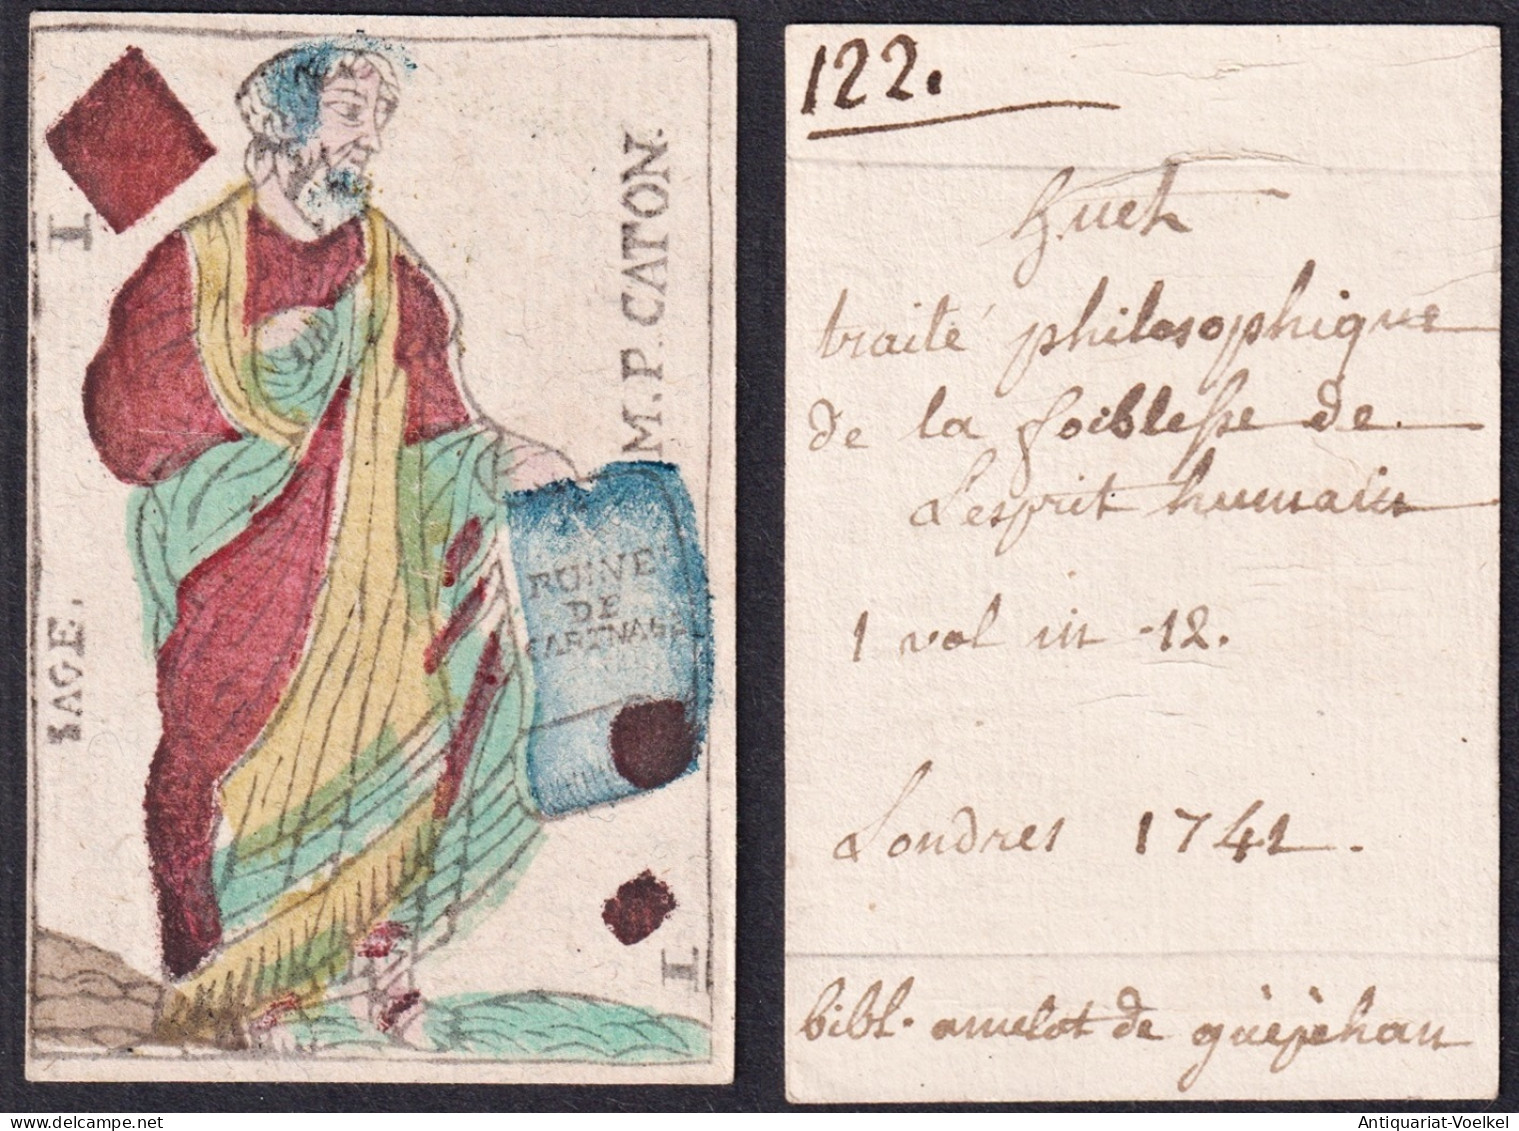 I
SAGE.
M.P.CATON.
RUINE
DE
CARTNAGE
I
122.
huet
traité philosophique
de la foiblesse de
l'esprit humain
1 vol in-12.
Londres 1741.
bibl. amelot de guèpèhan
Antiquariat-Voelkel.com